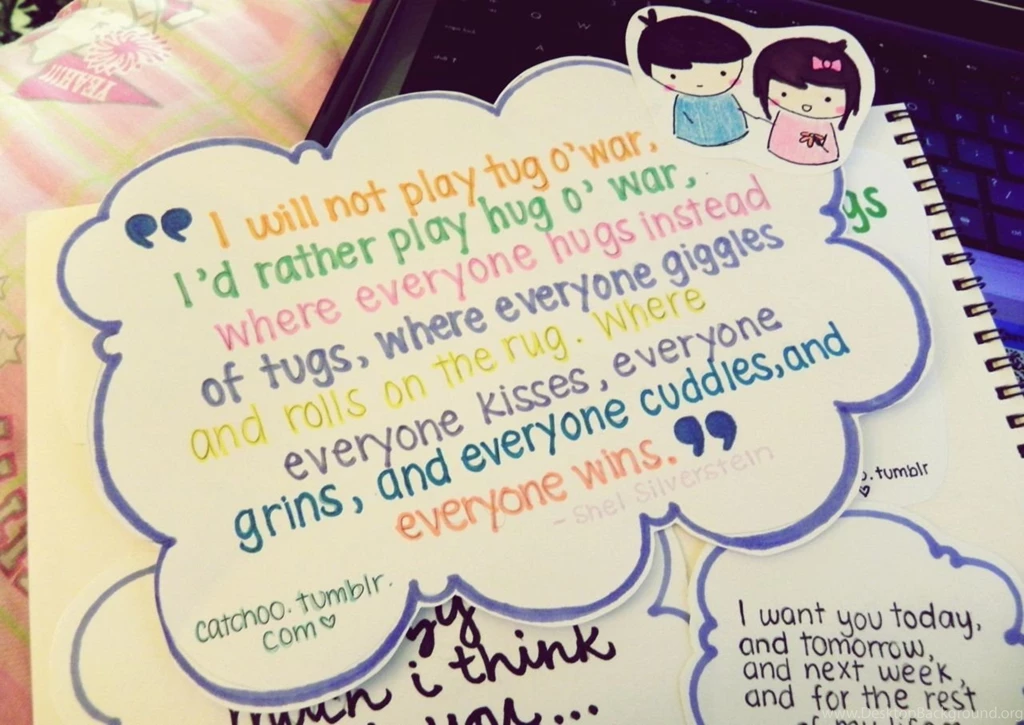 YEAH!!!
I will not play tug o'war.
I'd rather play hug o' war,
where everyone hugs instead
of tugs, where everyone giggles
and rolls on the rug. Where
everyone kisses, everyone
grins, and everyone cuddles, and
everyone wins.
- Shel Silverstein
catchoo.tumblr.
com
gs
.tumblr
much i think
you...
I want you today,
and tomorrow,
and next week,
and for the rest
www.DesktopBackground.org